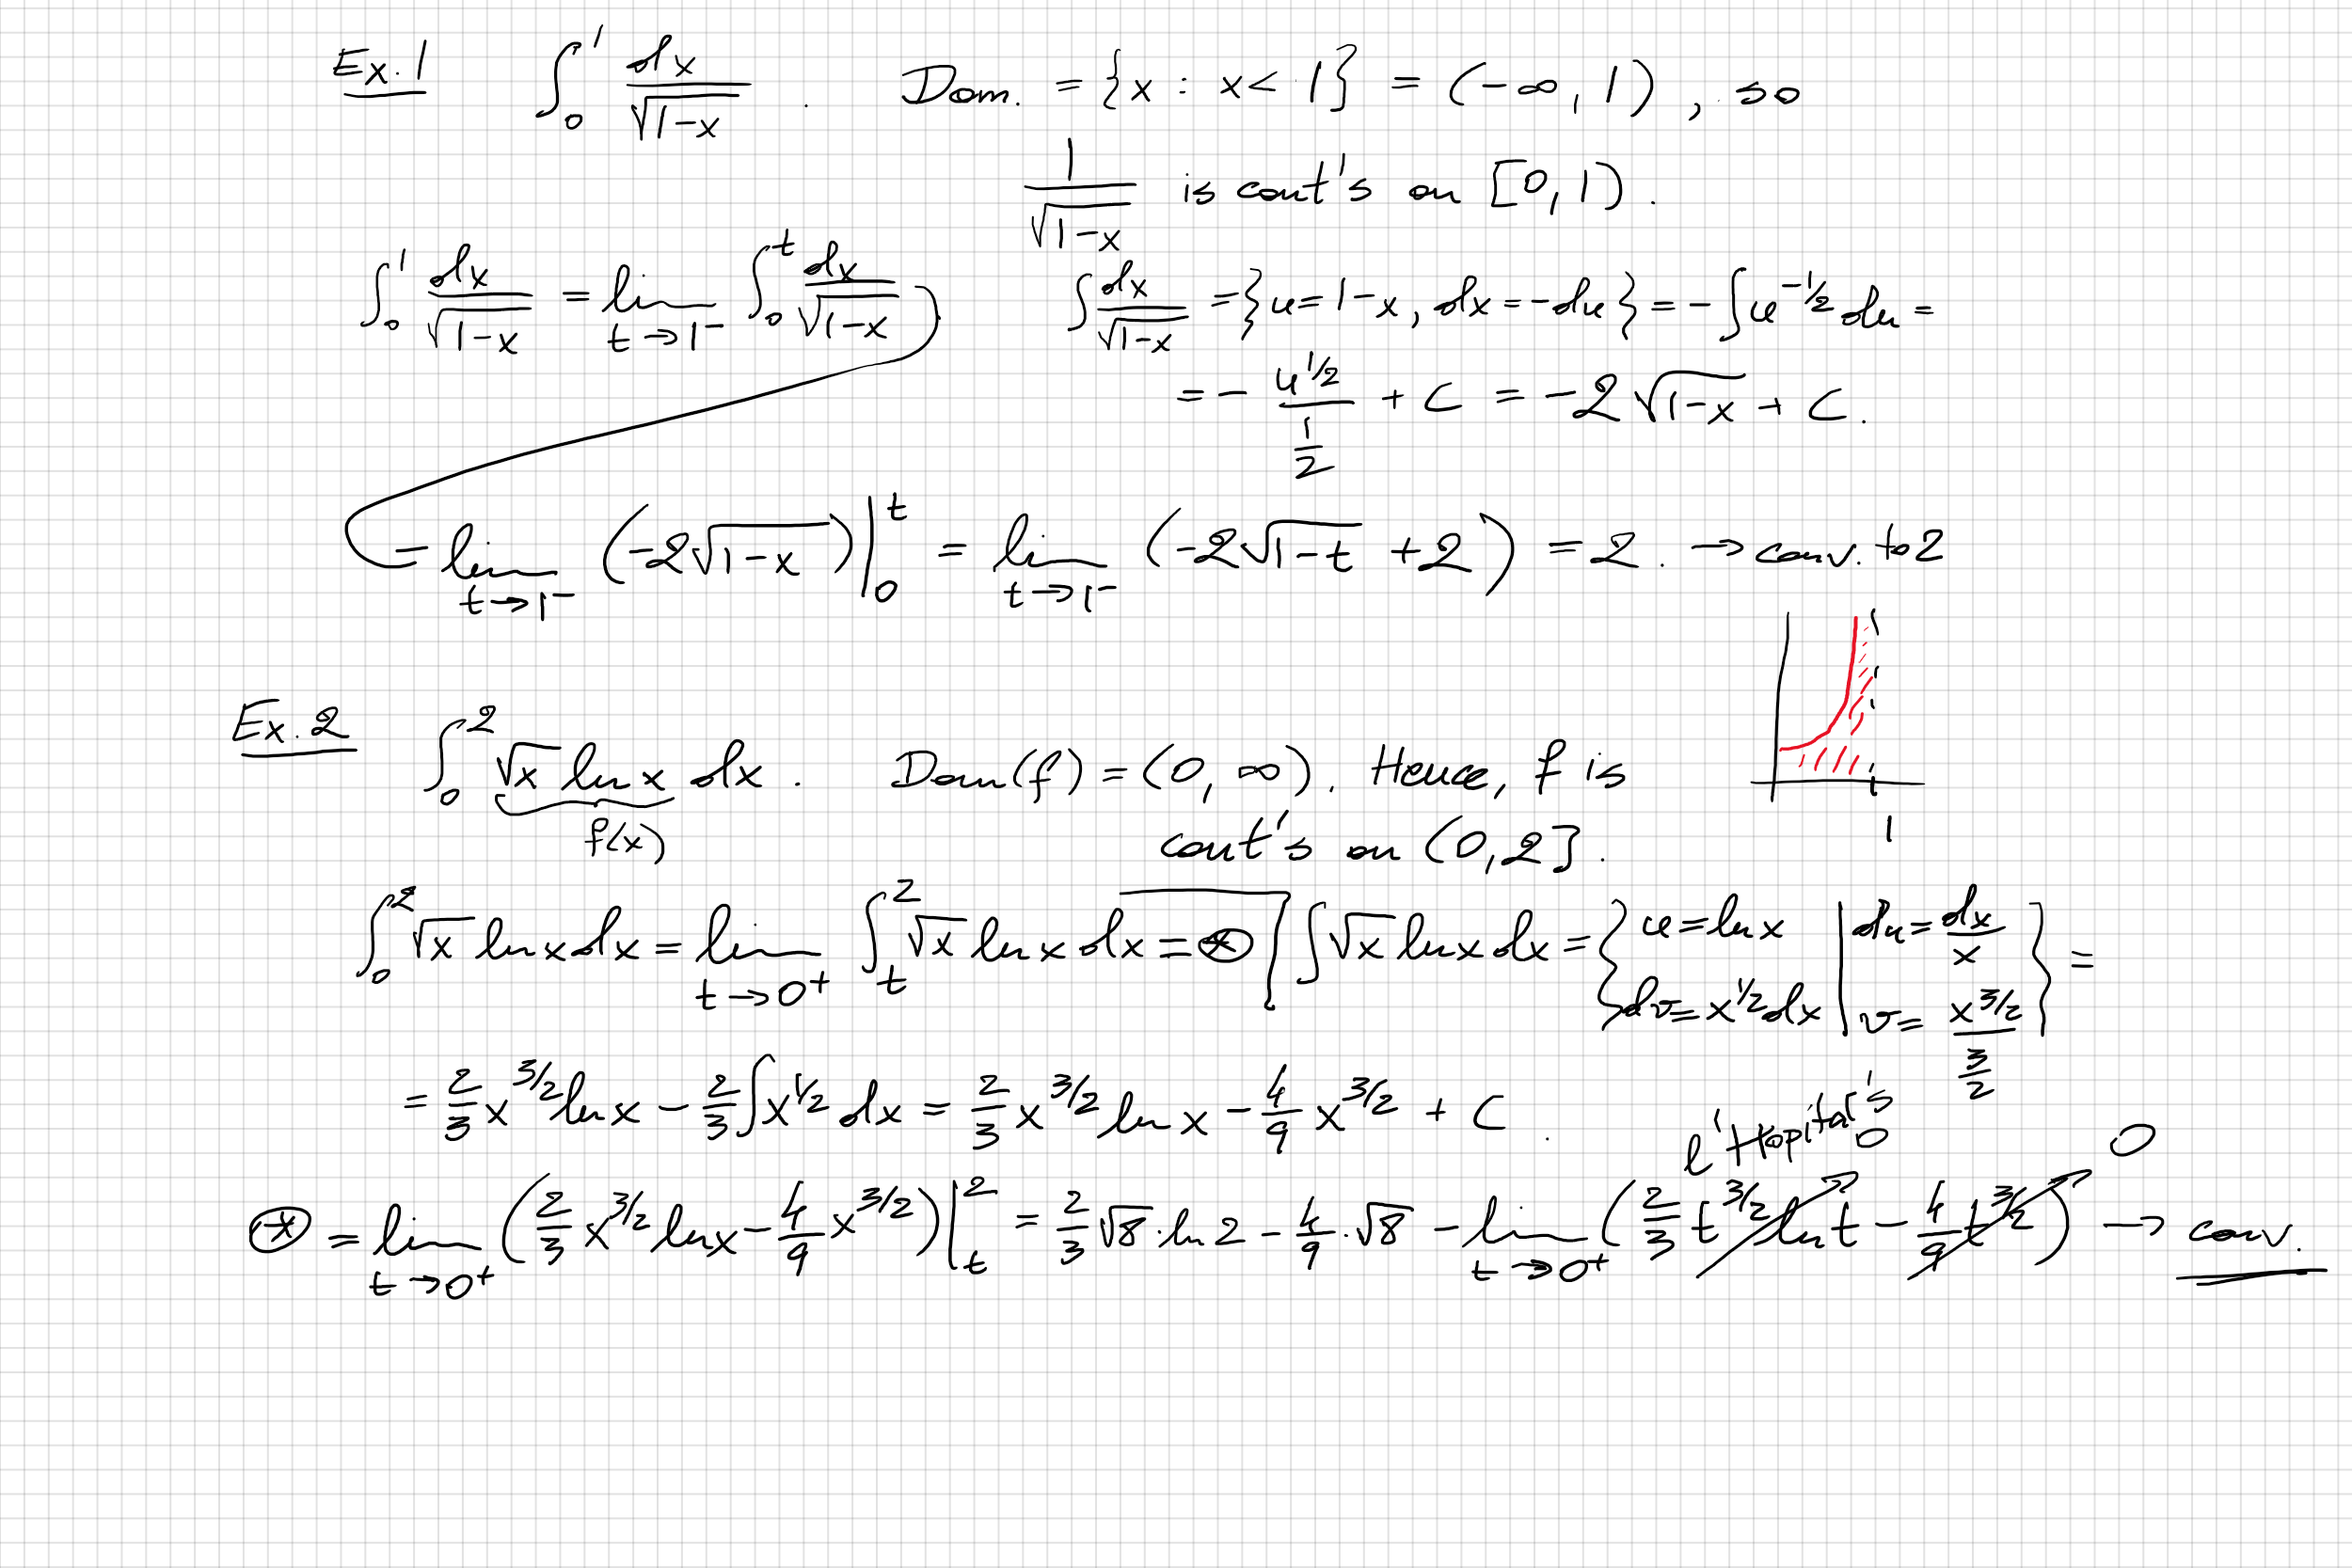 Ex. 1 ∫₀¹ dx/√(1-x) . Dom. = {x : x < 1} = (-∞, 1), so
1/√(1-x) is cont's on [0, 1).
∫₀¹ dx/√(1-x) = lim_{t→1⁻} ∫₀ᵗ dx/√(1-x) ∫ dx/√(1-x) = {u = 1-x, dx = -du} = -∫ u^{-1/2} du =
= - u^{1/2}/(1/2) + C = -2√(1-x) + C.
= lim_{t→1⁻} (-2√(1-x))|₀ᵗ = lim_{t→1⁻} (-2√(1-t) + 2) = 2. → conv. to 2
1
Ex. 2 ∫₀² √x ln x dx. Dom(f) = (0, ∞). Hence, f is
f(x) cont's on (0, 2].
∫₀² √x ln x dx = lim_{t→0⁺} ∫ₜ² √x ln x dx = ⊛ ∫ √x ln x dx = {u = ln x | du = dx/x
dv = x^{1/2} dx | v = x^{3/2}/(3/2)} =
= 2/3 x^{3/2} ln x - 2/3 ∫ x^{1/2} dx = 2/3 x^{3/2} ln x - 4/9 x^{3/2} + C.
l'Hopital's 0 0
⊛ = lim_{t→0⁺} (2/3 x^{3/2} ln x - 4/9 x^{3/2})|ₜ² = 2/3 √8 · ln 2 - 4/9 · √8 - lim_{t→0⁺} (2/3 t^{3/2} ln t - 4/9 t^{3/2}) → conv.